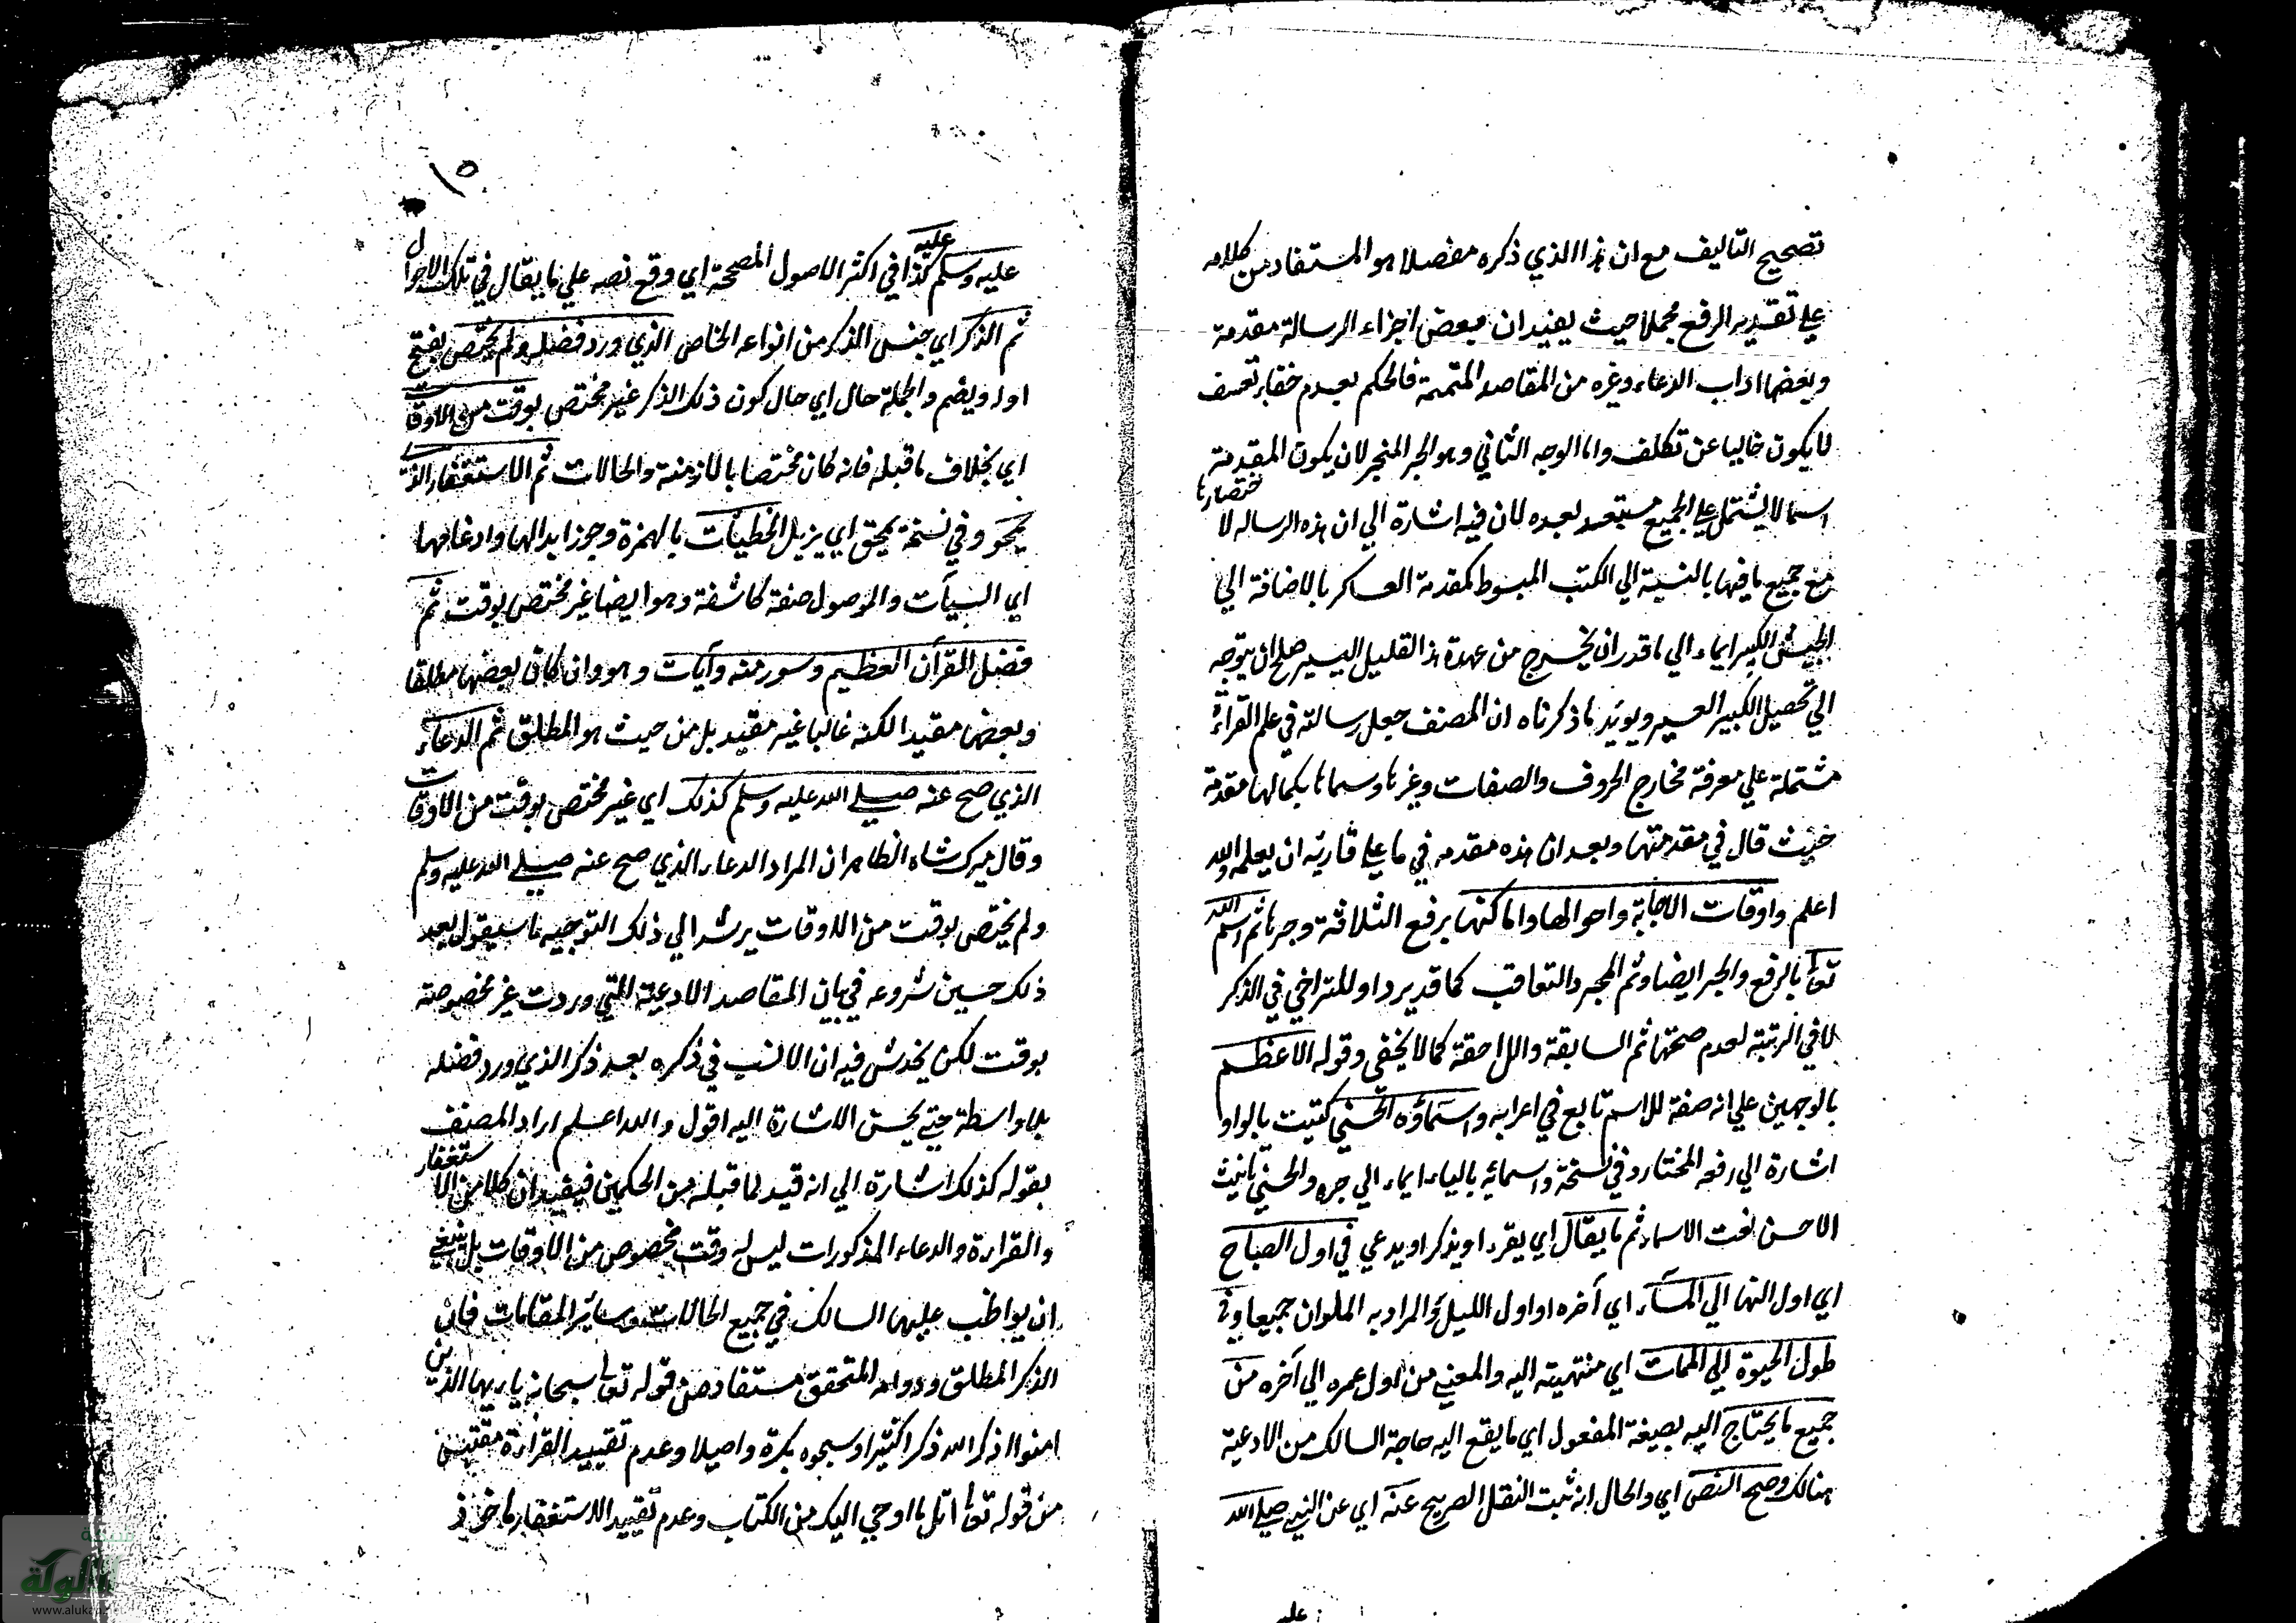 تصحيح التاليف مع ان هذا الذي ذكره مفصلا هو المستفاد من كلامه
علي تقدير الرفع مجملا حيث يفيد ان بعض اجزاء الرسالة مقدمة
وبعضها اداب الدعاء وغيره من المقاصد المتممة فالحكم بعدم خفاء تعسف
لا يكون خاليا عن تكلف واما الوجه الثاني وهو الجر المنجر لان يكون المقدمة
اسما لا يشتمل علي الجميع مستبعد بعده لان فيه اشارة الي ان هذه الرساله لاختصارها
مع جميع ما فيها بالنسبة الي الكتب المبسوط كمقدمة العساكر بالاضافة الي
الجيش الكبير ايماء الي ما قدر ان يخرج من عهدة هذا القليل اليسير صلح ان يتوجه
الي تحصيل الكبير العسير ويويد ما ذكرناه ان المصنف جعل رسالته في علم القراءة
مشتملة علي معرفة مخارج الحروف والصفات وغيرها وسماها بكمالها مقدمة
حيث قال في مقدمتها وبعد ان هذه مقدمه في ما علي قاريه ان يعلمه والله
اعلم واوقات الاجابة واحوالها واماكنها برفع الثلاثة وجرها ثم اسم الله
تعا بالرفع والجر ايضا وثم لمجرد التعاقب كما قد يرد او للتراخي في الذكر
لا في الرتبة لعدم صحتها ثم السابقة واللاحقة كما لا يخفي وقوله الاعظم
بالوجهين علي انه صفة للاسم تابع في اعرابه واسماؤه الحسني كتبت بالواو
اشارة الي رفعه المختار وفي نسخة واسمائه بالياء ايماء الي جره والحسني تانيث
الاحسن نعت الاسماء ثم ما يقال اي يقرء او يذكر او يدعي في اول الصباح
اي اول النهار الي المساء اي آخره او اول الليل والمراد به الملوان جميعا وفي
طول الحيوة الي الممات اي منتهيته اليه والمعني من اول عمره الي آخره من
جميع ما يحتاج اليه بصيغة المفعول اي ما يقع اليه حاجة السالك من الادعية
هنالك وصح النص اي والحال انه ثبت النقل الصريح عنه اي عن النبي صلي الله
عليه
١٥
عليه وسلم عليه كذا في اكثر الاصول المصححة اي وقع نصه علي ما يقال في تلك الاحوال
ثم الذكر اي جنس الذكر من انواعه الخاص الذي ورد فضله ولم يختص بفتح
اوله ويضم والجملة حال اي حال كون ذلك الذكر غير مختص بوقت من الاوقات
اي بخلاف ما قبله فانه كان مختصا بالازمنة والحالات ثم الاستغفار الذي
يمحو وفي نسخة يمحق اي يزيل الخطيئات بالهمزة وجوز ابدالها وادغامها
اي السيآت والموصول صفة كاشفة وهو ايضا غير مختص بوقت ثم
فضل القرآن العظيم وسور منه وآيات وهو وان كان بعضها مطلقا
وبعضها مقيدا لكنه غالبا غير مقيد بل من حيث هو المطلق ثم الدعاء
الذي صح عنه صلي الله عليه وسلم كذلك اي غير مختص بوقت من الاوقات
وقال ميرك شاه الظاهر ان المراد الدعاء الذي صح عنه صلي الله عليه وسلم
ولم يختص بوقت من الاوقات يرشد الي ذلك التوجيه ما سيقول بعد
ذلك حين شروعه في بيان المقاصد الادعية التي وردت غير مخصوصة
بوقت لكن يخدش فيه ان الانسب في ذكره بعد ذكر الذي ورد فضله
بلا واسطة حتي يحسن الاشارة اليه اقول والله اعلم اراد المصنف
بقوله كذلك اشارة الي انه قيد لما قبله من الحكمين فيفيد ان كلا من الاستغفار
والقراءة والدعاء المذكورات ليس له وقت مخصوص من الاوقات بل ينبغي
ان يواظب عليها السالك في جميع الحالات وساير المقامات فان
الذكر المطلق ودوامه المتحقق مستفاد من قوله تعا سبحانه يا ايها الذين
امنوا اذكروا الله ذكرا كثيرا وسبحوه بكرة واصيلا وعدم تقييد القراءة مقتبس
من قوله تعا اتل ما اوحي اليك من الكتاب وعدم تقييد الاستغفار ماخوذ
الألوكة